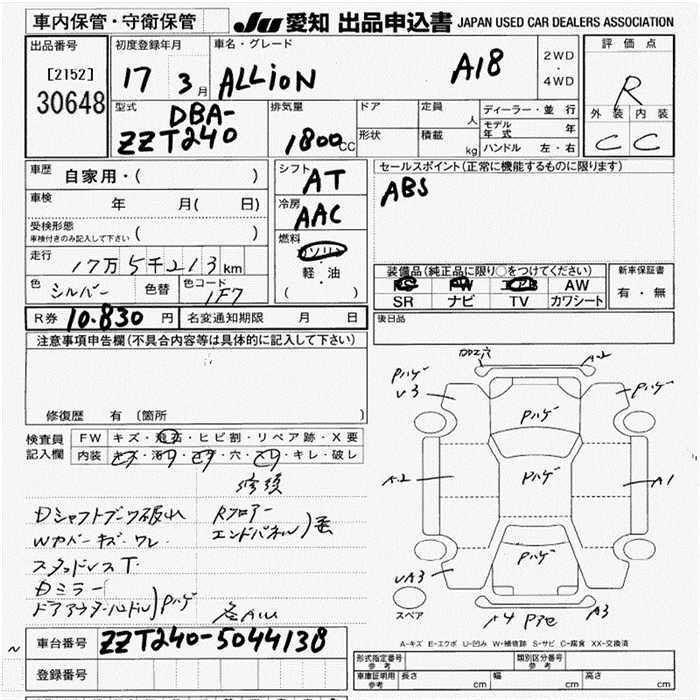 車内保管・守衛保管
JU 愛知 出品申込書 JAPAN USED CAR DEALERS ASSOCIATION
出品番号
[2152]
30648
初度登録年月
17 3月
車名・グレード
ALLION A18
2WD
・
4WD
評価点
R
外装 内装
C C
型式
DBA-
ZZT240
排気量
1800cc
ドア
形状
定員 人
積載 kg
ディーラー・並行
モデル年式 年
ハンドル 左・右
車歴 自家用・( )
車検 年 月( 日)
受検形態
車検付きのみ記入して下さい ( )
走行 17万5千213km
色 シルバー 色替 色コード 1F7
シフト AT
冷房 AAC
燃料
ガソリン
・
軽・油
( )
セールスポイント(正常に機能するものに限ります)
ABS
装備品(純正品に限り○をつけてください)
PS PW エアB AW
SR ナビ TV カワシート
新車保証書
有・無
R券 10.830 円
名変通知期限 月 日
後日品
注意事項申告欄(不具合内容等は具体的に記入して下さい)
修復歴 有 (箇所 )
検査員
記入欄
FW キズ・飛石・ヒビ割・リペア跡・X要
内装 キズ・汚れ・コゲ・穴・スレ・キレ・破レ
Dシャフトブーツ破れ
Wカバーキズ・ワレ
スタッドレスT
Dミラー
ドアアウターハンドル)Pハゲ
Rフロアー
エンドパネル
A2
Pハゲ
U3
Pハゲ
Pハゲ
A2
Pハゲ
A1
Pハゲ
UA3
A3
スペア
A-キズ E-エクボ U-凹み W-補修跡 S-サビ C-腐食 XX-交換済
車台番号 ZZT240-5044138
登録番号
形式指定番号
参考
類別区分番号
参考
車庫証明用
参考
長さ cm
幅 cm
高さ cm